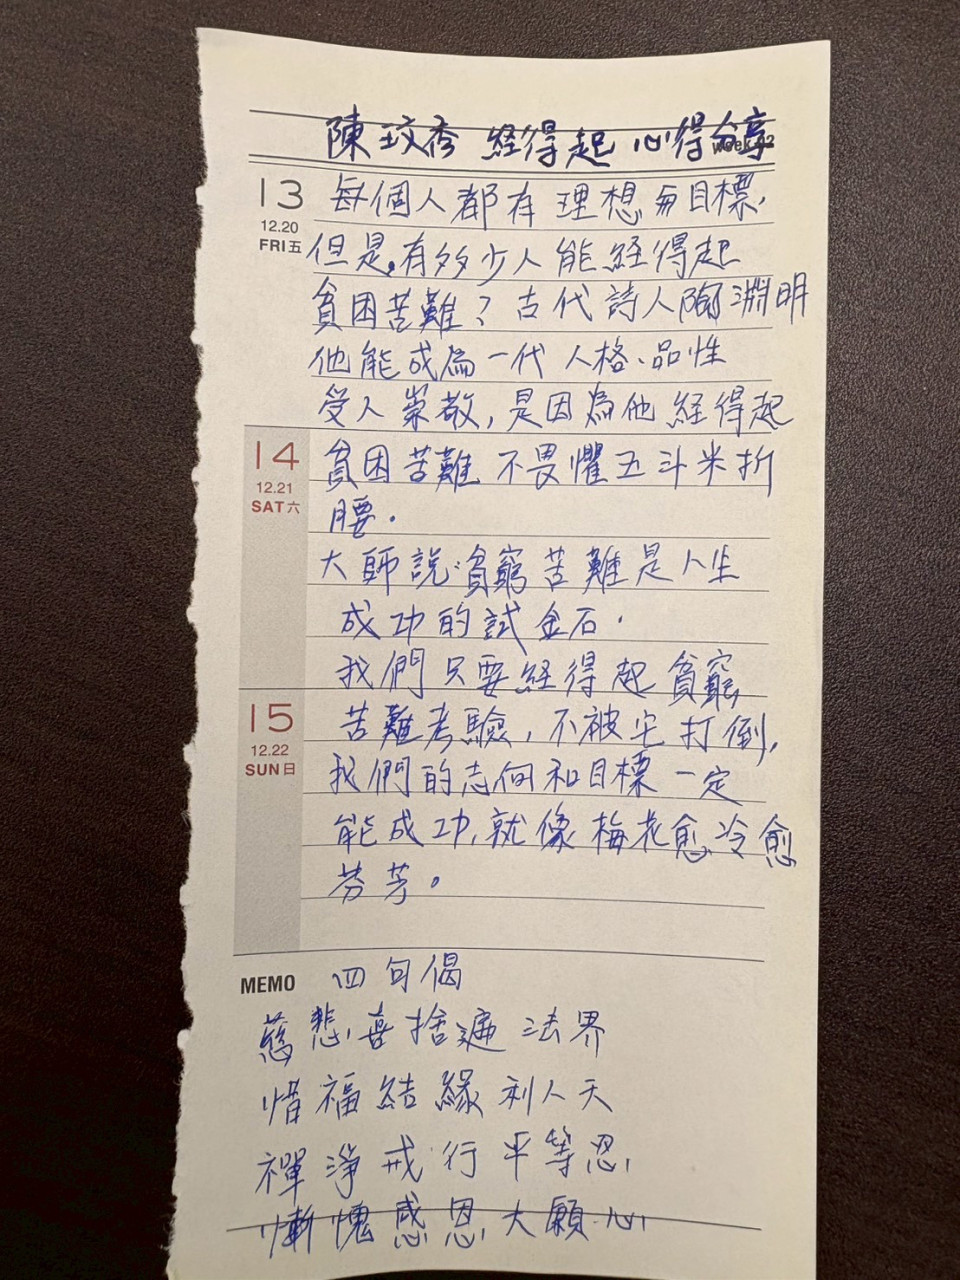 陳玟秀 経得起 心得分享
week 02
13 每個人都有理想与目標,
12.20
FRI五 但是,有多少人能経得起
貧困苦難?古代詩人陶淵明
他能成為一代人格、品性
受人崇敬,是因為他経得起
14 貧困苦難不畏懼五斗米折
12.21
SAT六 腰.
大師說:貧窮苦難是人生
成功的試金石.
我們只要経得起貧窮
15 苦難考驗,不被它打倒,
12.22
SUN日 我們的志向和目標一定
能成功,就像梅花愈冷愈
芬芳。
MEMO 四句偈
慈悲喜捨遍法界
惜福結緣利人天
禪淨戒行平等忍
慚愧感恩大願心